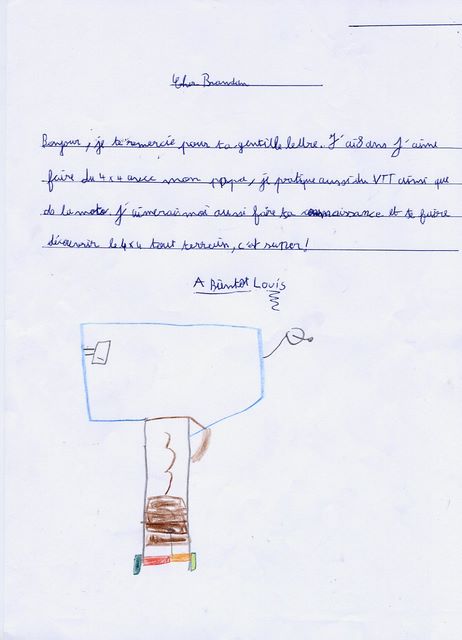 Cher Brandon
Bonjour, je te remercie pour ta gentille lettre. J'ai 8 ans J'aime
faire du 4x4 avec mon papa, je pratique aussi du VTT ainsi que
de la moto J'aimerai moi aussi faire ta connaissance et te faire
découvrir le 4x4 tout terrain, c'est super!
A Bientot Louis